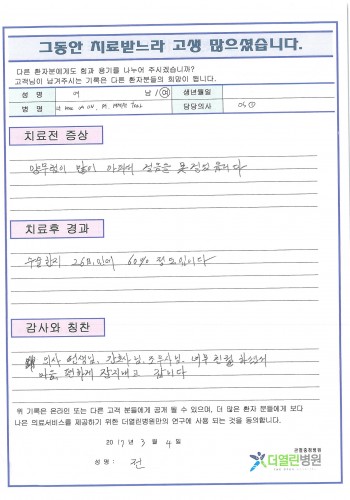 그동안 치료받느라 고생 많으셨습니다.
다른 환자분에게도 힘과 용기를 나누어 주시겠습니까?
고객님이 남겨주시는 기록은 다른 환자분들의 희망이 됩니다.
성 명 이 남 / 여 생년월일
병 명 담당의사
치료전 증상
양무릎이 많이 아파서 걸음을 못걸었습니다
치료후 경과
수술한지 26日만에 60% 정도입니다
감사와 칭찬
의사 선생님, 간호사님, 조무사님, 너무 친절하셔서
마음 편하게 잘지내고 갑니다
위 기록은 온라인 또는 다른 고객 분들에게 공개 될 수 있으며, 더 많은 환자 분들에게 보다
나은 의료서비스를 제공하기 위한 더열린병원만의 연구에 사용 되는 것을 동의합니다.
2017년 3월 4일
성명 : 전
관절중점병원
더열린병원